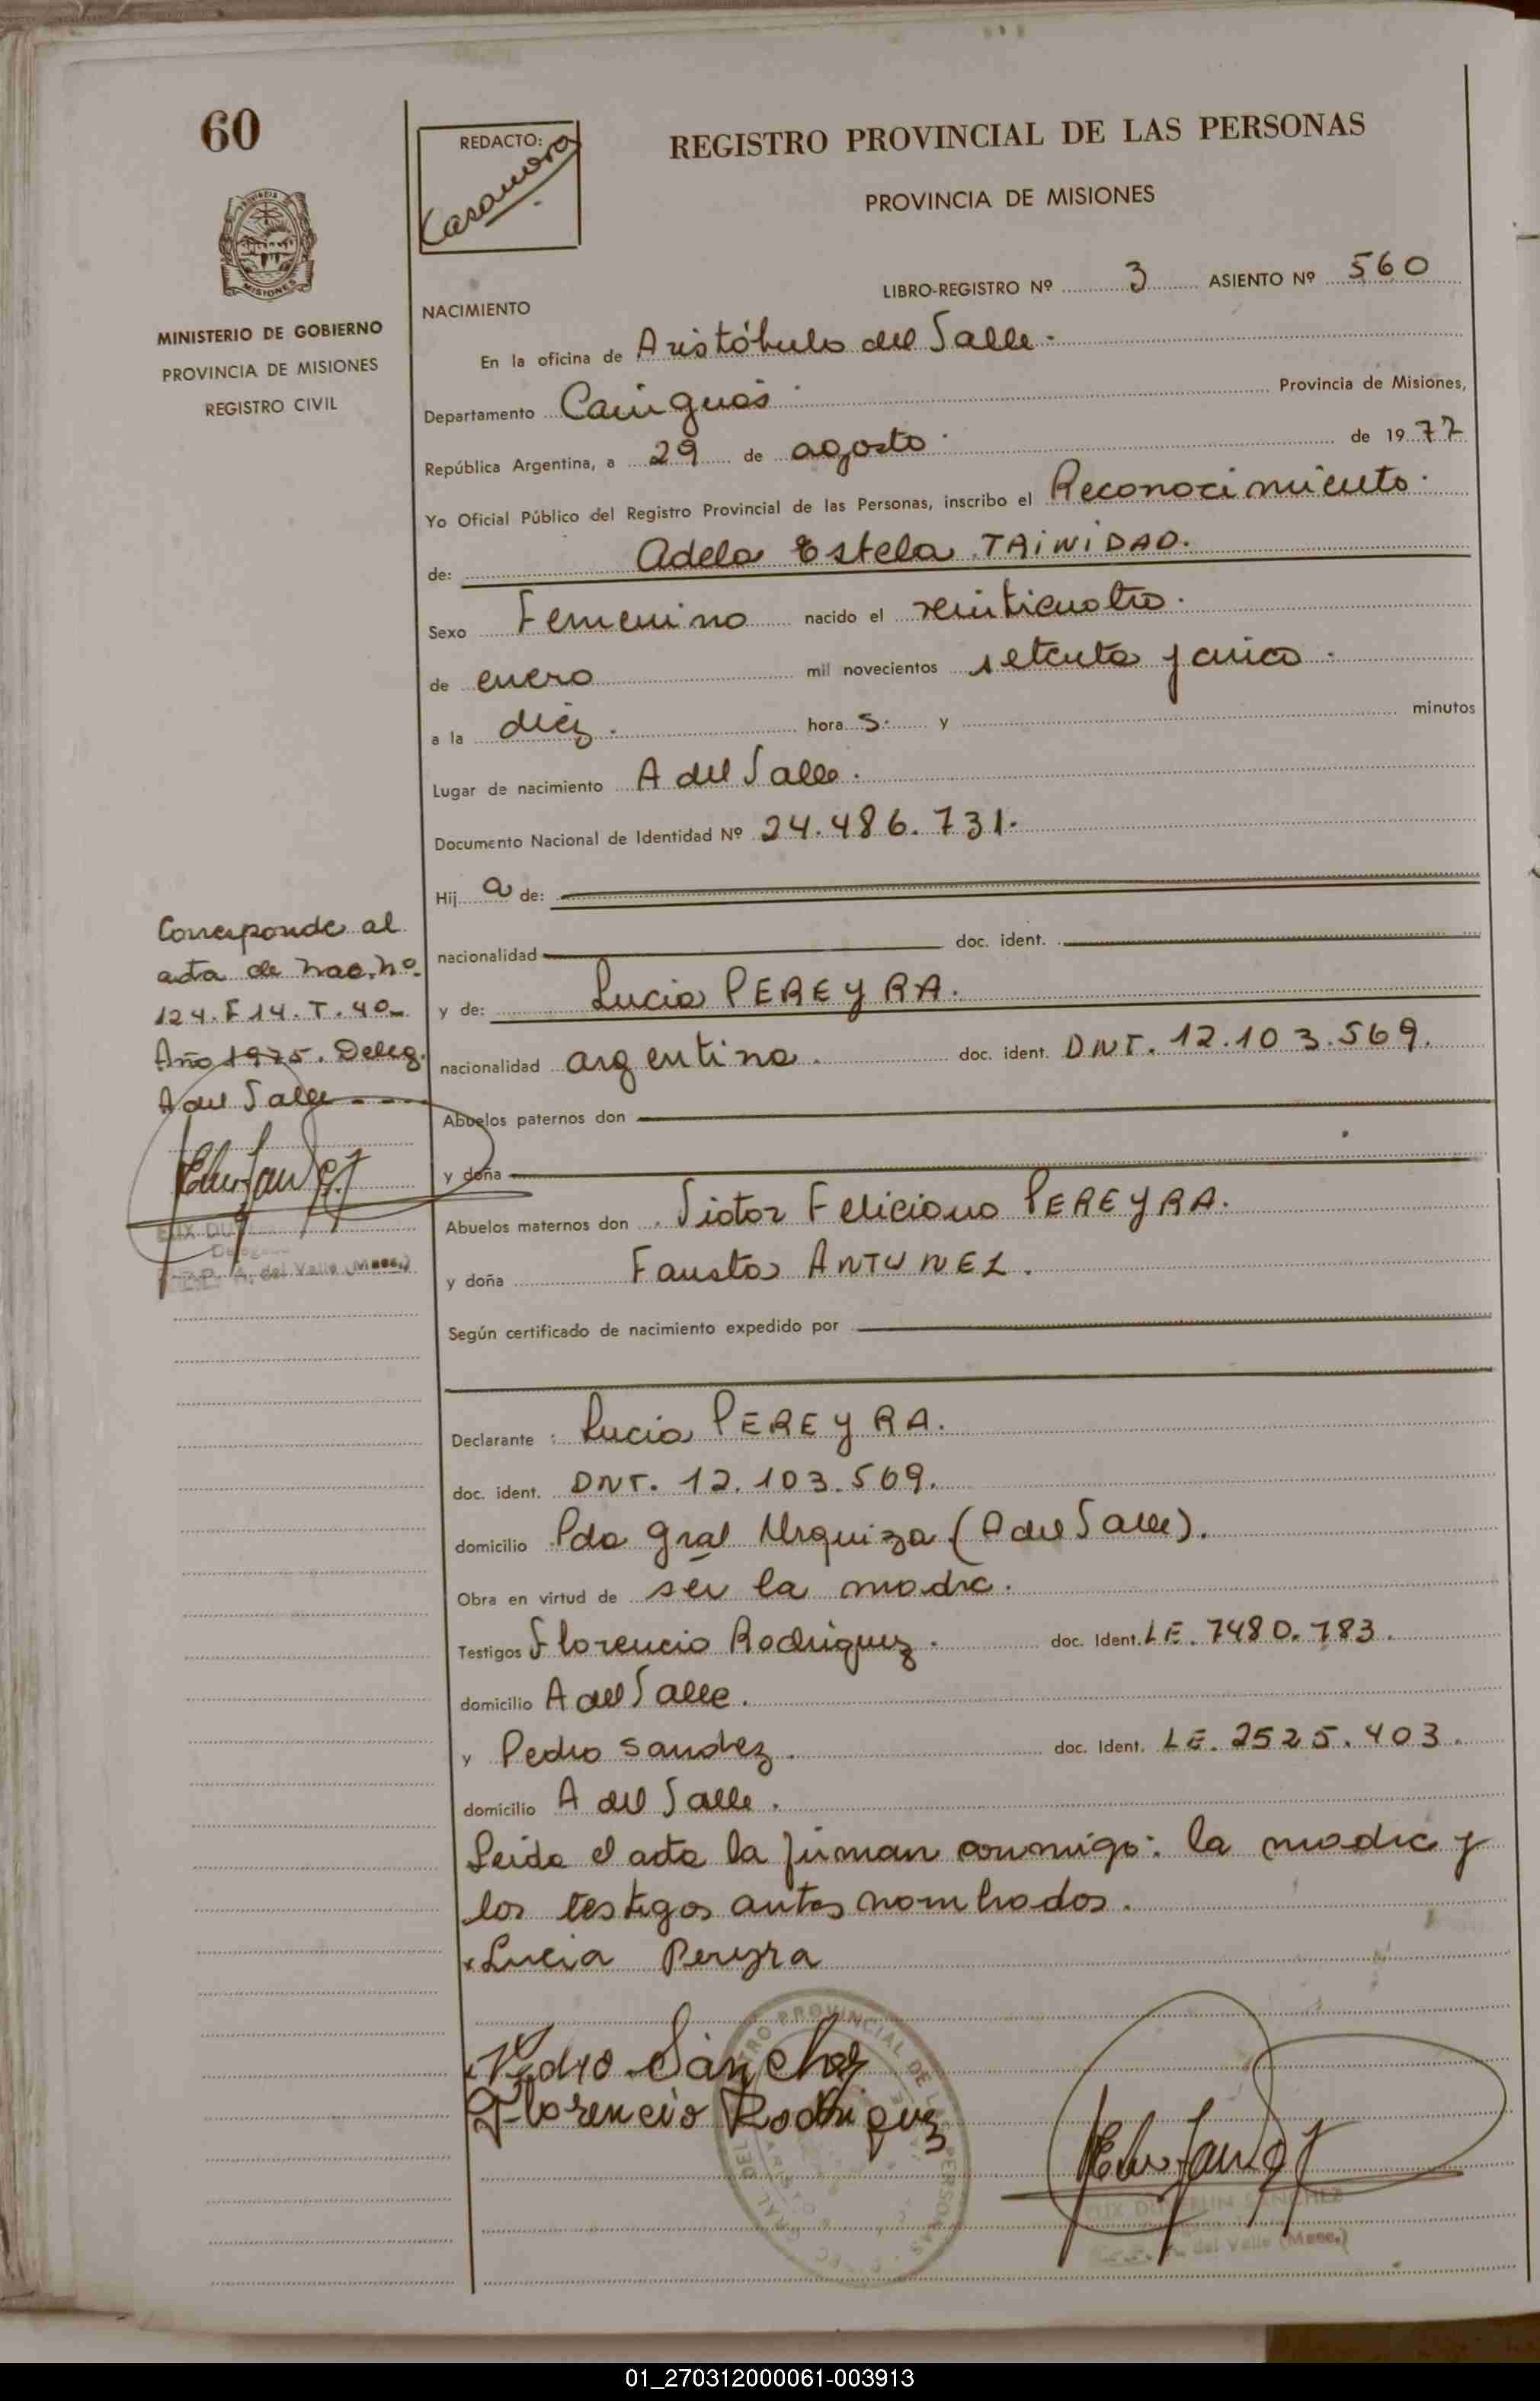 60
REDACTO:
Casanova
REGISTRO PROVINCIAL DE LAS PERSONAS
PROVINCIA DE MISIONES
LIBRO-REGISTRO Nº 3 ASIENTO Nº 560
MISIONES
MINISTERIO DE GOBIERNO
PROVINCIA DE MISIONES
REGISTRO CIVIL
NACIMIENTO
En la oficina de Aristóbulo del Valle.
Departamento Cainguás. Provincia de Misiones,
República Argentina, a 29 de agosto. de 1977
Yo Oficial Público del Registro Provincial de las Personas, inscribo el Reconocimiento.
de: Adela Estela TRINIDAD.
Sexo Femenino nacido el veinticuatro.
de enero mil novecientos setenta y cinco.
a la diez. hora s. y minutos
Lugar de nacimiento A del Valle.
Documento Nacional de Identidad Nº 24.486.731.
Hij a de:
nacionalidad doc. ident.
y de: Lucia PEREYRA.
nacionalidad argentina. doc. ident. DNI. 12.103.569.
Abuelos paternos don
y doña
Abuelos maternos don Victor Feliciano PEREYRA.
y doña Fausta ANTUNEZ.
Según certificado de nacimiento expedido por
Corresponde al
acta de nac. nº
124. F 14. T. 40
Año 1975. Deleg.
A del Valle
A. del Valle (Mnes.)
Declarante : Lucia PEREYRA.
doc. ident. DNI. 12.103.569.
domicilio Pdo Gral Urquiza (A del Valle).
Obra en virtud de ser la madre.
Testigos Florencio Rodriguez. doc. Ident. LE. 7480.783.
domicilio A del Valle.
y Pedro Sandez. doc. Ident. LE. 2525.403.
domicilio A del Valle.
Leida el acta la firman conmigo: la madre y
los testigos antes nombrados.
x Lucia Pereyra
x Pedro Sánchez
Florencio Rodriguez
SANCHEZ
del Valle (Mnes.)
01_270312000061-003913